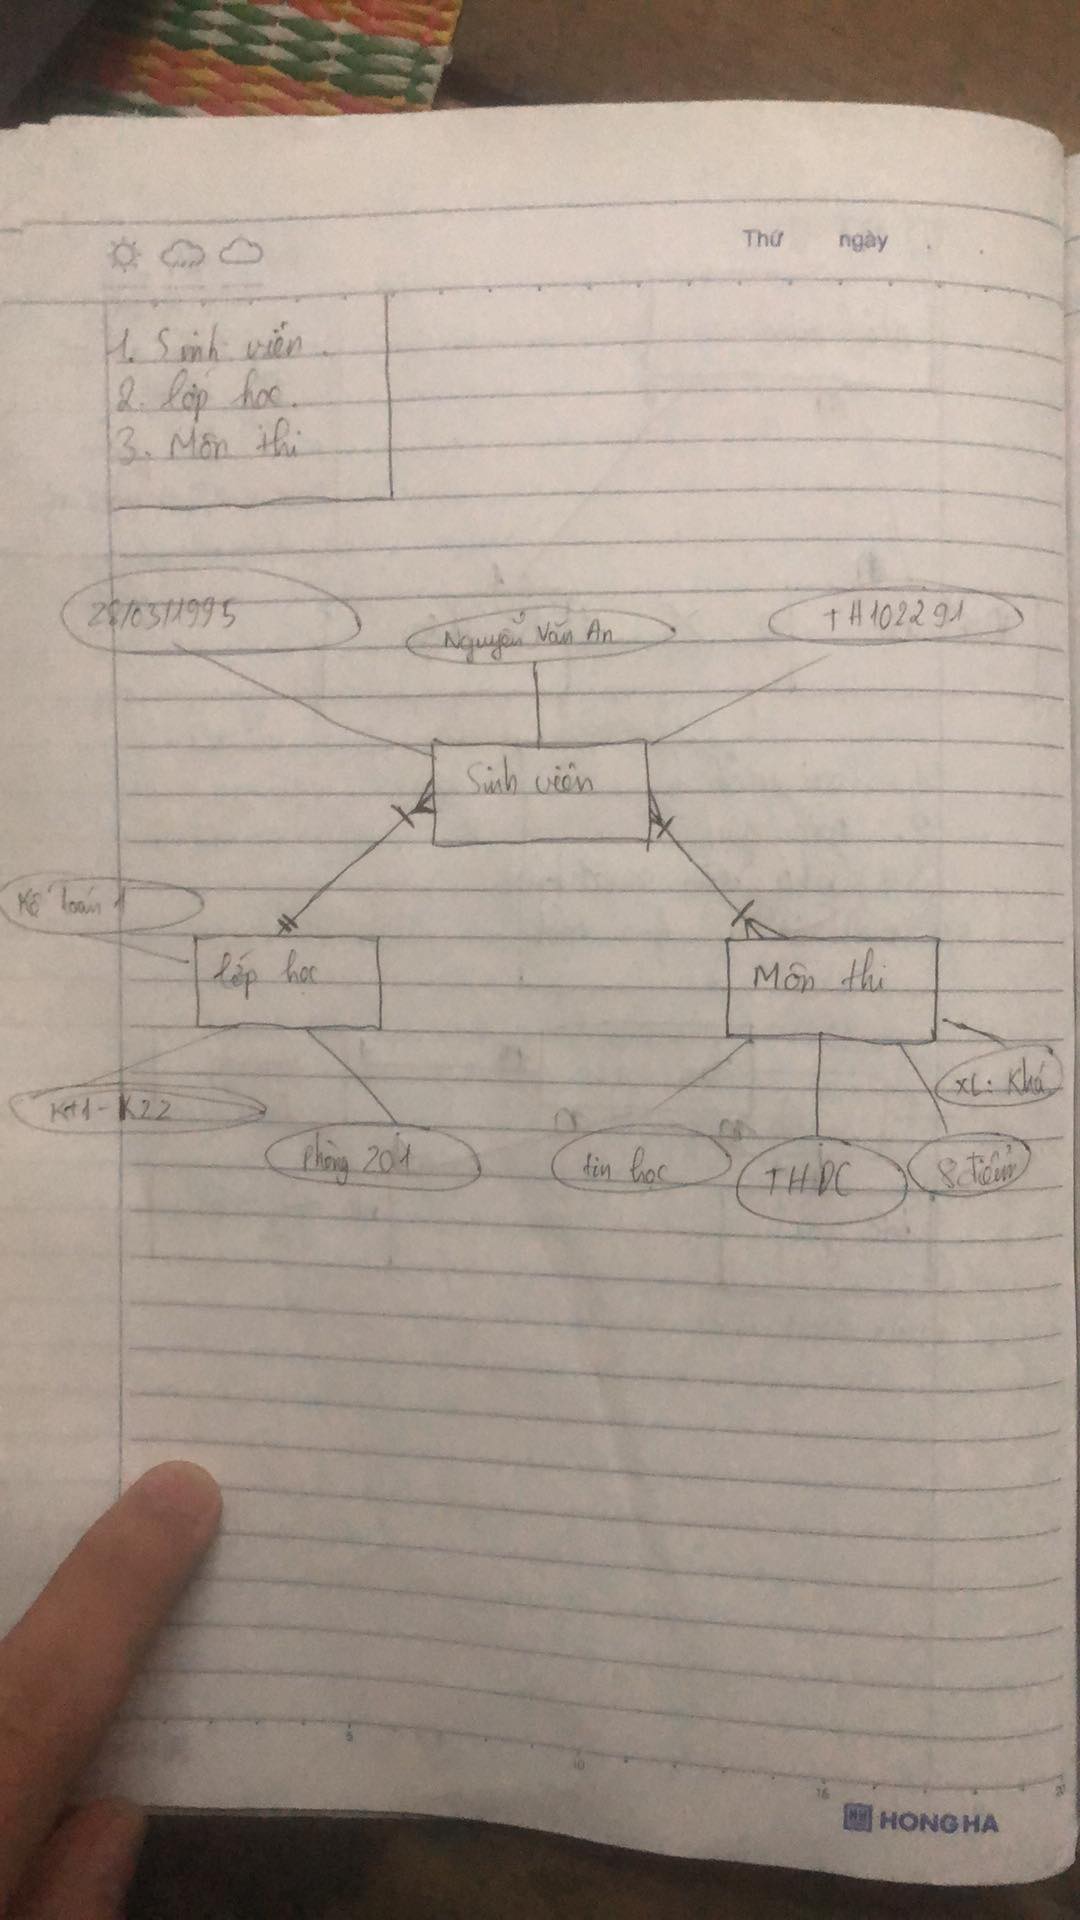 Thứ ngày
1. Sinh viên.
2. lớp học.
3. Môn thi
28/03/1995
Nguyễn Văn An
TH102291
Sinh viên
Kế toán 1
lớp học
Môn thi
XL: Khá
Kt1-K22
Phòng 201
tin học
THDC
8 điểm
5
10
15
HONG HA